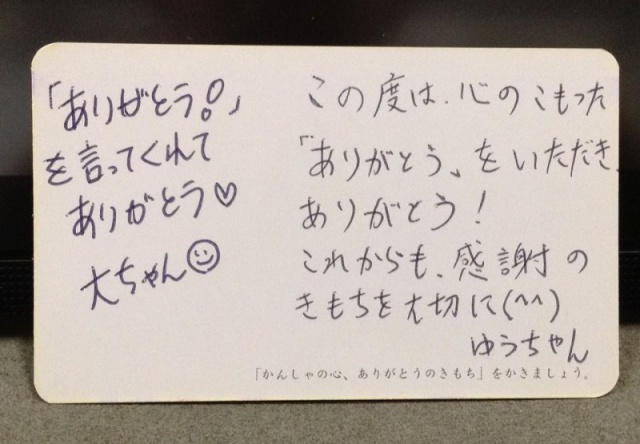 「ありがとう!」
を言ってくれて
ありがとう♡
大ちゃん☺
この度は、心のこもった
「ありがとう」をいただき、
ありがとう!
これからも、感謝の
きもちを大切に(^^)
ゆうちゃん
「かんしゃの心、ありがとうのきもち」をかきましょう。